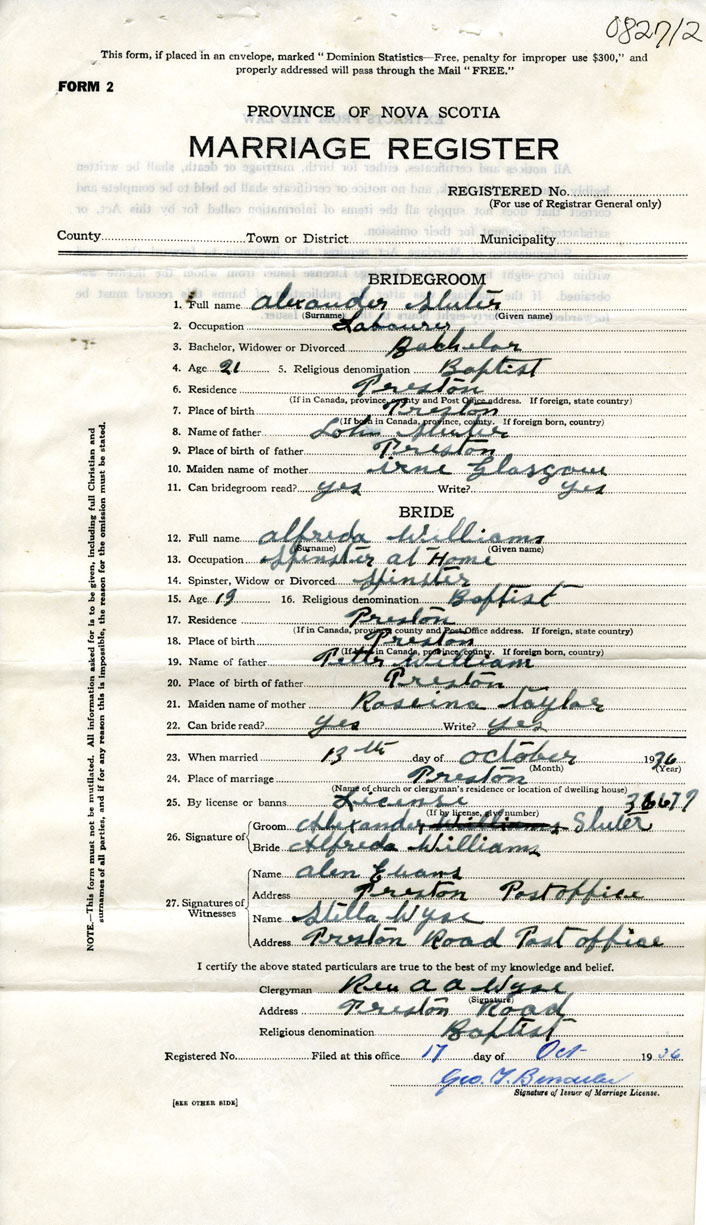 082712
This form, if placed in an envelope, marked “ Dominion Statistics—Free, penalty for improper use $300,” and
properly addressed will pass through the Mail “ FREE.”
FORM 2
PROVINCE OF NOVA SCOTIA
MARRIAGE REGISTER
REGISTERED No.
(For use of Registrar General only)
County Town or District Municipality
BRIDEGROOM
1. Full name alexander Sluter
(Surname) (Given name)
2. Occupation Labourer
3. Bachelor, Widower or Divorced Bachelor
4. Age 21 5. Religious denomination Baptist
6. Residence Preston
(If in Canada, province, county and Post Office address. If foreign, state country)
7. Place of birth Preston
(If born in Canada, province, county. If foreign born, country)
8. Name of father John Sluter
9. Place of birth of father Preston
10. Maiden name of mother irne Glasgow
11. Can bridegroom read? yes Write? yes
BRIDE
12. Full name alfreda Williams
(Surname) (Given name)
13. Occupation Spinster at Home
14. Spinster, Widow or Divorced Spinster
15. Age 19 16. Religious denomination Baptist
17. Residence Preston
(If in Canada, province, county and Post Office address. If foreign, state country)
18. Place of birth Preston
(If born in Canada, province, county. If foreign born, country)
19. Name of father Peter William
20. Place of birth of father Preston
21. Maiden name of mother Roseina taylor
22. Can bride read? yes Write? yes
23. When married 13th day of october 1936
(Month) (Year)
24. Place of marriage Preston
(Name of church or clergyman's residence or location of dwelling house)
25. By license or banns License
(If by license, give number)
26. Signature of Groom Alexander Williams Sluter
Bride Alfreda Williams
27. Signatures of Witnesses Name alen Evans
Address Preston Post office
Name Stella Wyse
Address Preston Road Post office
I certify the above stated particulars are true to the best of my knowledge and belief.
Clergyman Rev a a Wyse
(Signature)
Address Preston Road
Religious denomination Baptist
Registered No. Filed at this office 17 day of Oct 1936
Geo. T.
Signature of Issuer of Marriage License.
[SEE OTHER SIDE]
NOTE.—This form must not be mutilated. All information asked for is to be given, including full Christian and
surnames of all parties, and if for any reason this is impossible, the reason for the omission must be stated.